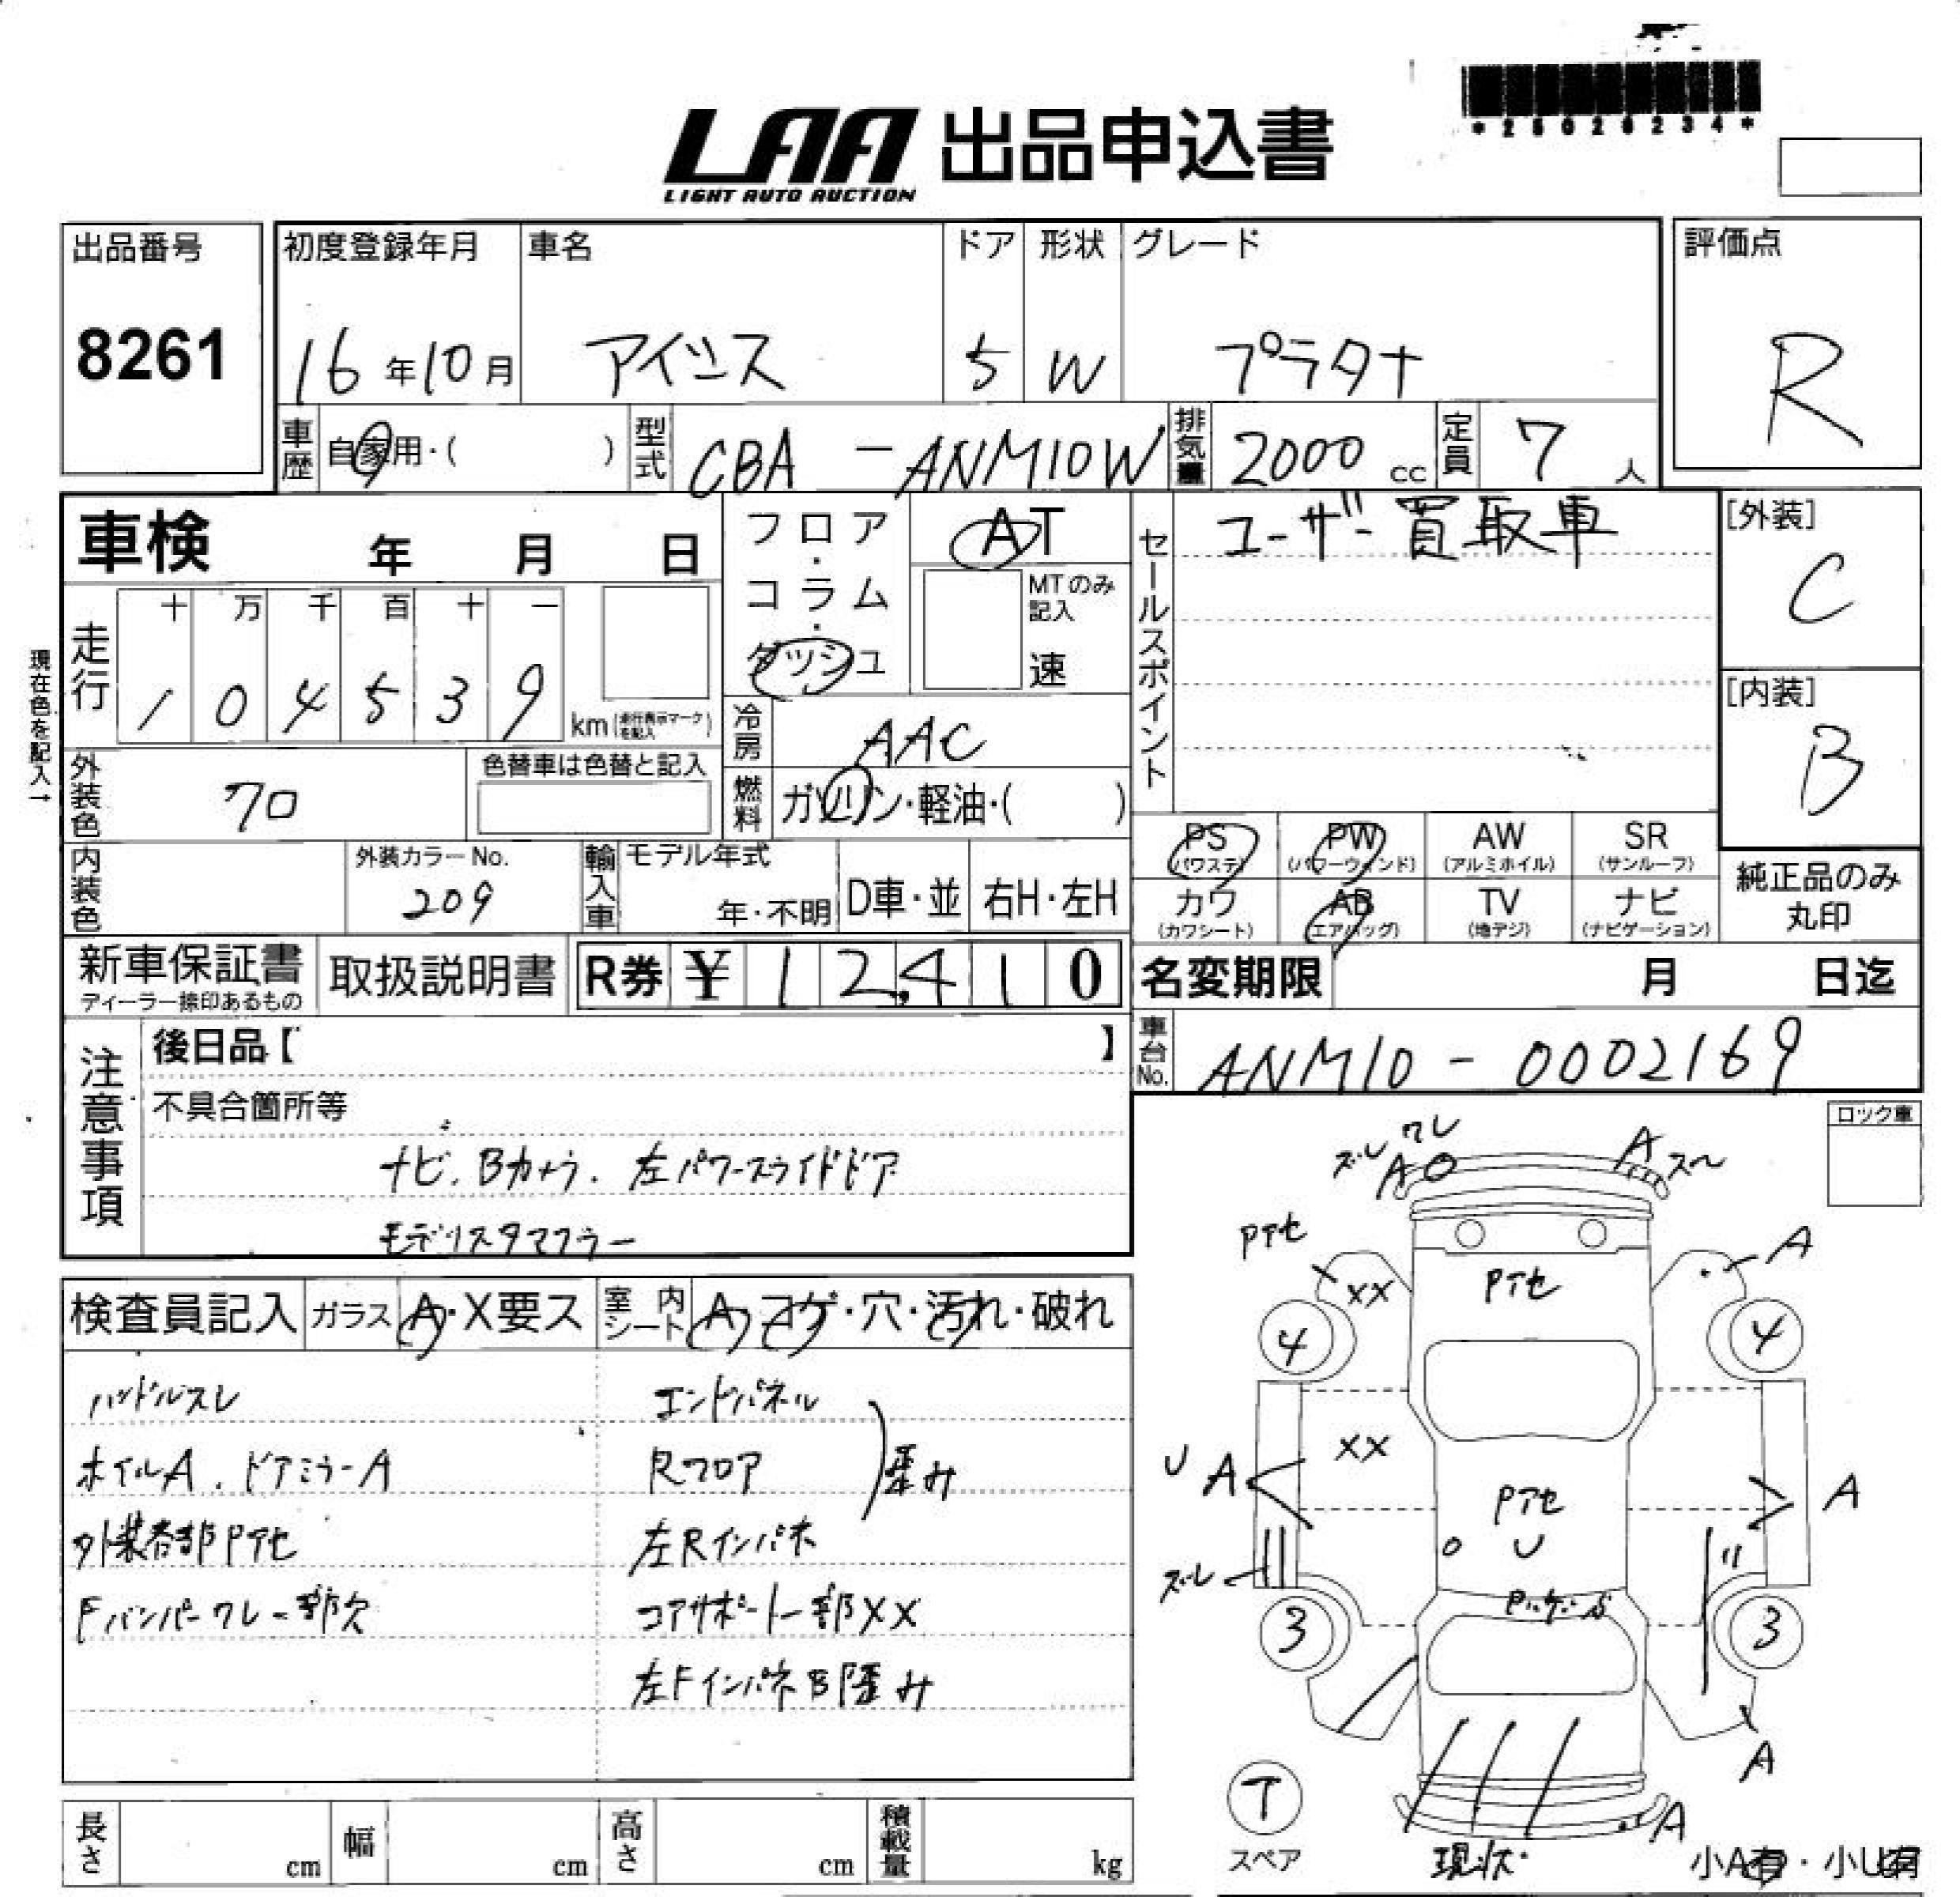 *25026234*
LAA 出品申込書
LIGHT AUTO AUCTION
出品番号
8261
初度登録年月
16年10月
車名
アイシス
ドア
5
形状
W
グレード
プラタナ
評価点
R
車歴 自家用・( )
型式 CBA-ANM10W
排気量 2000cc
定員 7人
車検 年 月 日
フロア・コラム・ダッシュ
AT
MTのみ記入
速
セールスポイント
ユーザー買取車
[外装]
C
[内装]
B
現在色を記入→
走行
十 万 千 百 十 一
1 0 4 5 3 9
km(走行表示マークを記入)
冷房 AAC
燃料 ガソリン・軽油・( )
外装色 クロ
色替車は色替と記入
内装色
外装カラーNo.
209
輸入車
モデル年式
年・不明
D車・並
右H・左H
PS (パワステ)
PW (パワーウィンド)
AW (アルミホイル)
SR (サンルーフ)
カワ (カワシート)
AB (エアバッグ)
TV (地デジ)
ナビ (ナビゲーション)
純正品のみ
丸印
新車保証書
ディーラー捺印あるもの
取扱説明書
R券 ¥12,410
名変期限 月 日迄
車台No. ANM10-0002169
注意事項
後日品【 】
不具合箇所等
ナビ、Bカメラ、左パワースライドドア
モデリスタマフラー
ロック車
検査員記入
ガラス A・X要ス
室内シート A・コゲ・穴・汚れ・破れ
ハンドルスレ
ホイルA、ドアミラーA
外装各部Pアセ
Fバンパーワレ一部欠
エンドパネル
Rフロア
歪み
左Rインパネ
コアサポート一部XX
左Fインパネ部歪み
ズレ ワレ
A
A
Pアセ
XX
Pアセ
A
4
4
XX
U A
Pアセ
A
U
ズレ
3
3
A
A
T
スペア
現状
小A有・小U有
長さ cm
幅 cm
高さ cm
積載量 kg